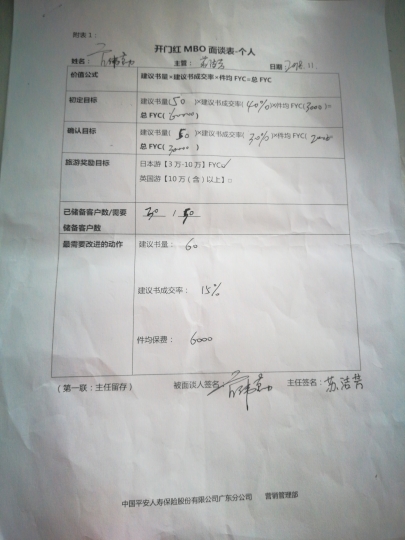 附表1：
开门红 MBO 面谈表-个人
姓名： 主管：苏洁芸 日期：2018.11
价值公式 建议书量×建议书成交率×件均 FYC=总 FYC
初定目标 建议书量(50)×建议书成交率(40%)×件均 FYC(3000)=
总 FYC(60000)
确认目标 建议书量(50)×建议书成交率(30%)×件均 FYC(2000)=
总 FYC(30000)
旅游奖励目标 日本游【3 万-10 万】FYC✓
英国游【10 万（含）以上】□
已储备客户数/需要 30 / 50
储备客户数
最需要改进的动作 建议书量： 60
建议书成交率： 15%
件均保费： 6000
（第一联：主任留存） 被面谈人签名： 主任签名：苏洁芸
中国平安人寿保险股份有限公司广东分公司 营销管理部